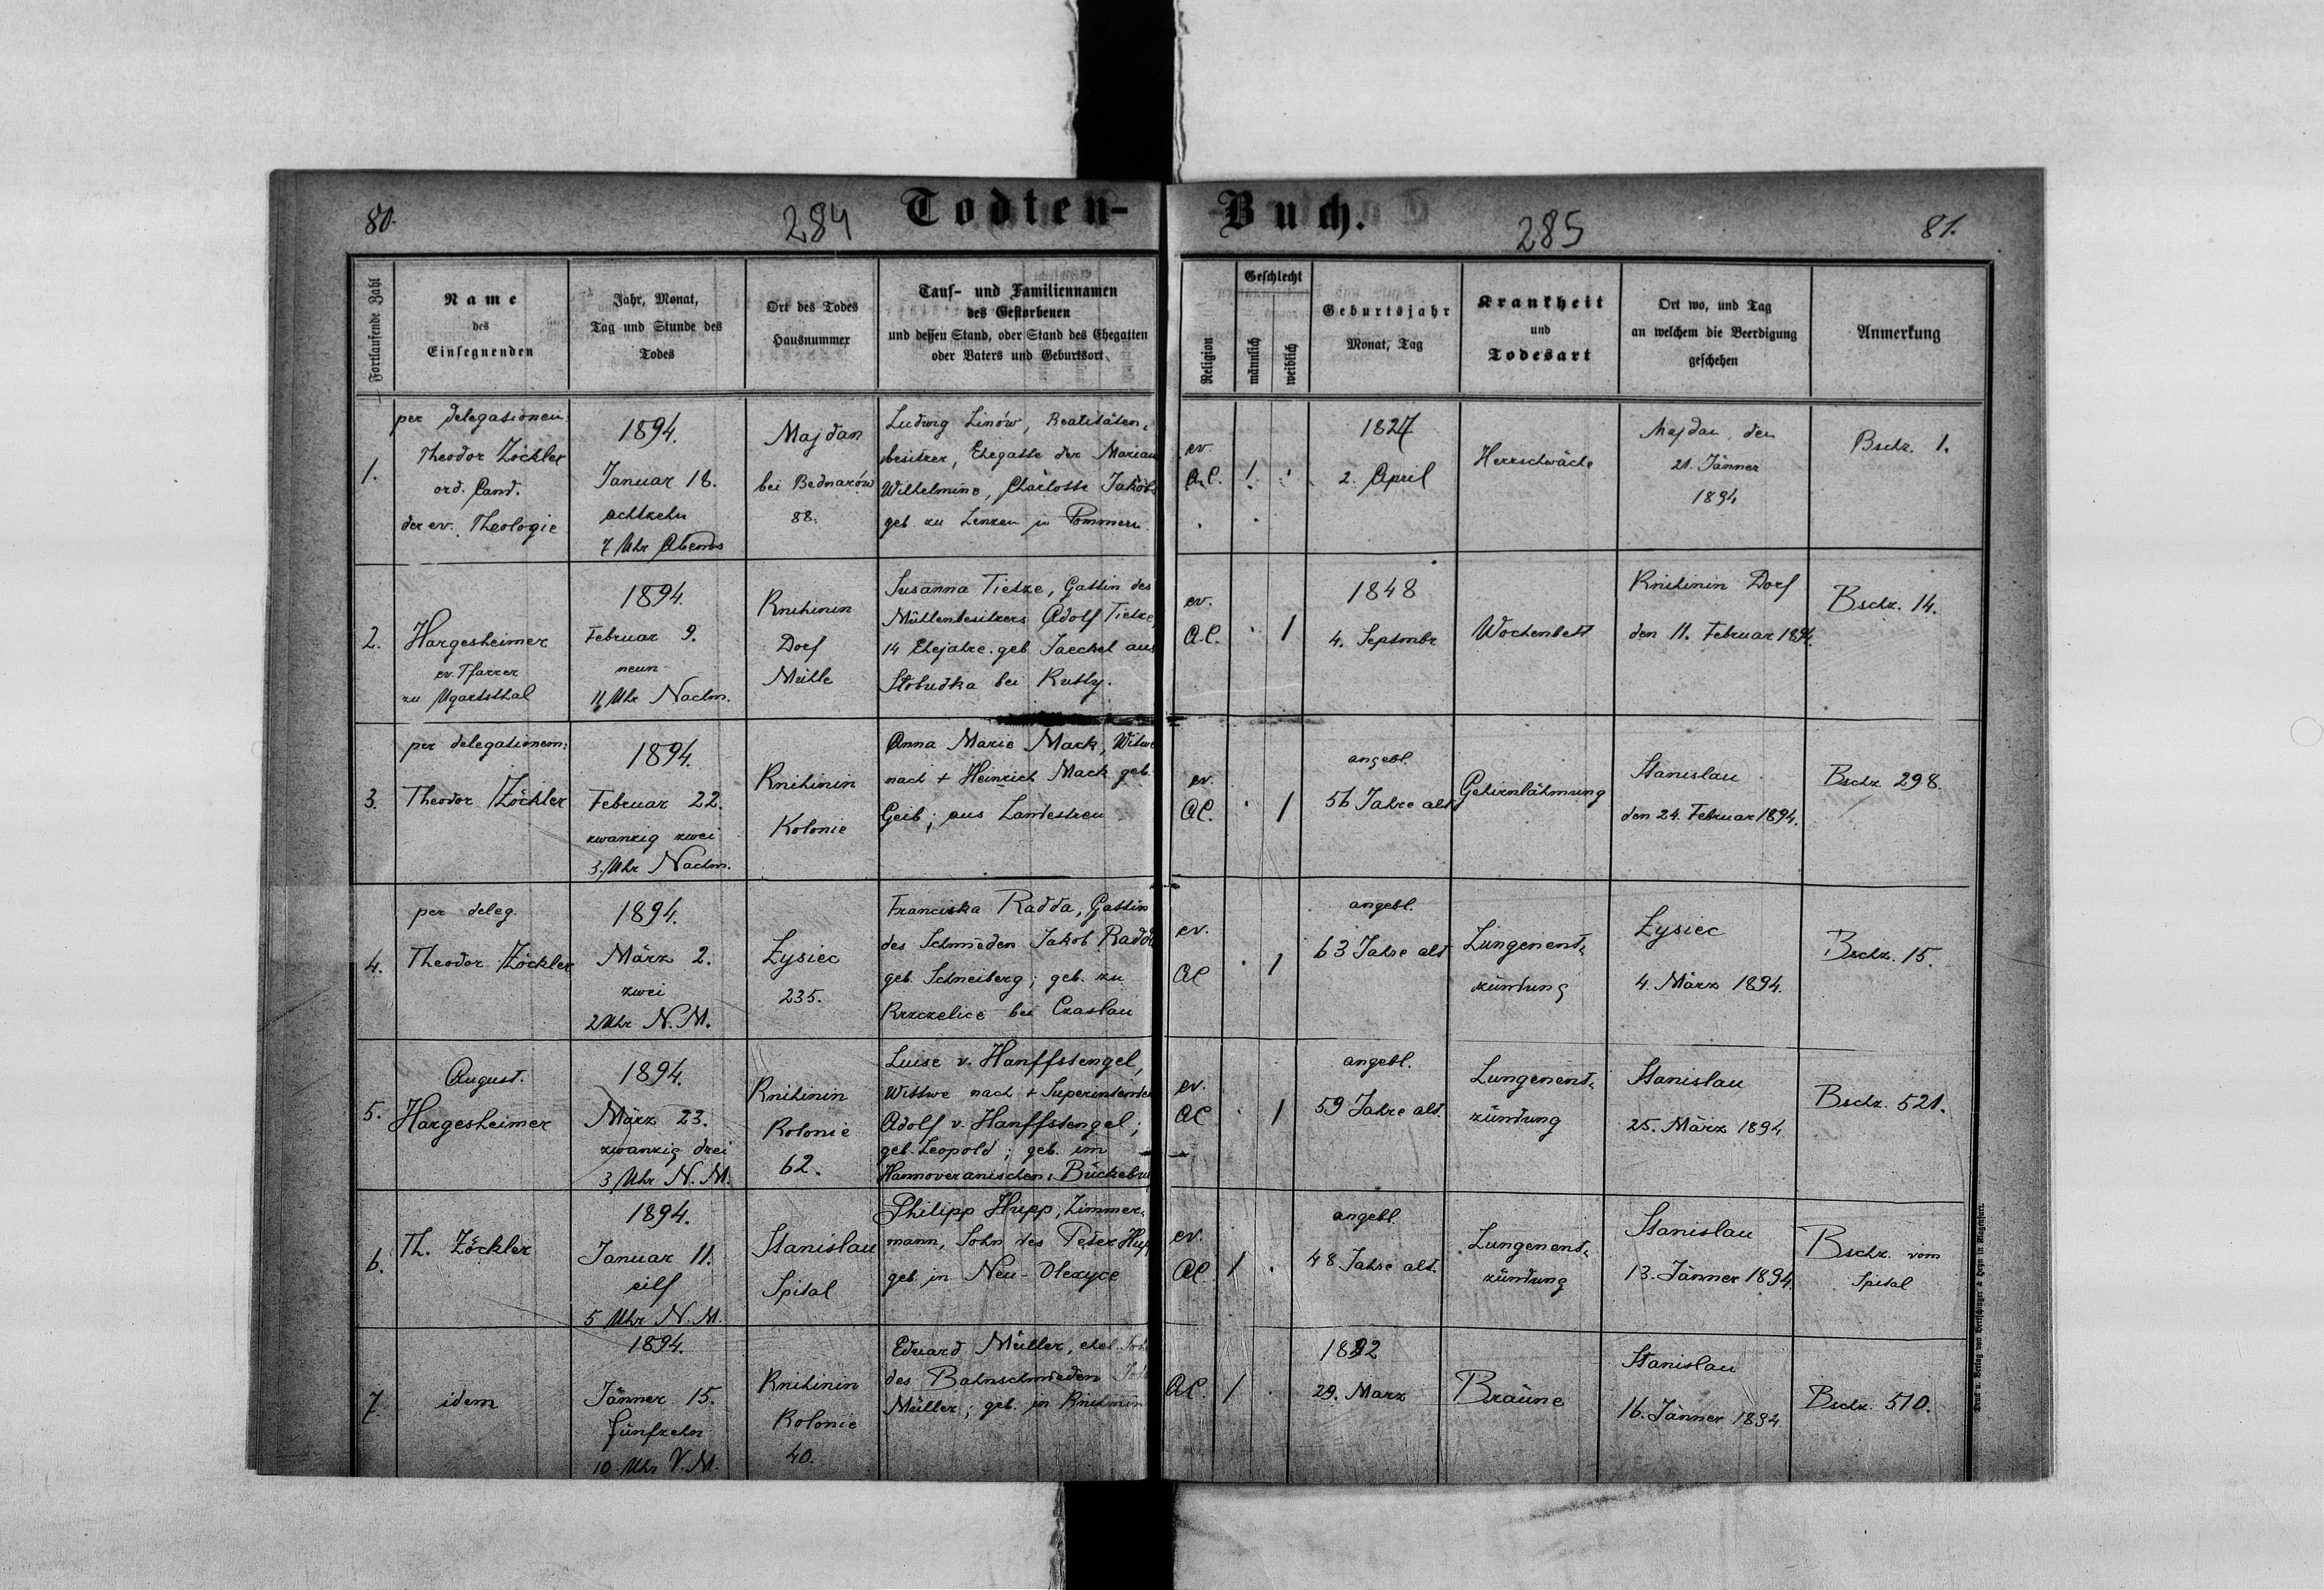 80.
284
Todten-
Buch.
285
81.
Fortlaufende Zahl
Name
des
Einsegnenden
Jahr, Monat,
Tag und Stunde des
Todes
Ort des Todes
Hausnummer
Tauf- und Familiennamen
des Gestorbenen
und dessen Stand, oder Stand des Ehegatten
oder Vaters und Geburtsort
Religion
Geschlecht
männlich
weiblich
Geburtsjahr
Monat, Tag
Krankheit
und
Todesart
Ort wo, und Tag
an welchem die Beerdigung
geschehen
Anmerkung
1.
per delegationem:
Theodor Zöckler
ord. Cand.
der ev. Theologie
1894.
Januar 18.
achtzehn
7 Uhr Abends
Majdan
bei Bednarów
88.
Ludwig Linów, Realitäten-
besitzer, Ehegatte der Marian
Wilhelmine, Charlotte Jakobs
geb. zu Lenzen in Pommern.
ev.
A.C.
1
1827
2. April
Herzschwäche
Majdan, den
21. Jänner
1894
Bschz. 1.
2.
Hargesheimer
ev. Pfarrer
zu Ugartsthal
1894.
Februar 9.
neun
11 Uhr Nachm.
Knihinin
Dorf
Mühle
Susanna Tietze, Gattin des
Mühlenbesitzers Adolf Tietze,
14 Ehejahre. geb Jaeckel aus
Słobudka bei Kutty.
ev.
A.C.
1
1848
4. Septmbr
Wochenbett
Knihinin Dorf
den 11. Februar 1894.
Bschz. 14.
3.
per delegationem:
Theodor Zöckler
1894.
Februar 22.
zwanzig zwei
3. Uhr Nachm.
Knihinin
Kolonie
Anna Marie Mack, Witwe
nach + Heinrich Mack geb.
Geib; aus Landestreu
ev.
AC.
1
angebl.
56 Jahre alt
Gehirnlähmung
Stanislau
den 24. Februar 1894.
Bschz 298.
4.
per deleg.
Theodor Zöckler
1894.
März 2.
zwei
2 Uhr N.M.
Łysiec
235.
Franciska Radda, Gattin
des Schmieden Jakob Radda
geb. Schneiberg; geb. zu
Krzczelice bei Czaslau
ev.
AC
1
angebl.
63 Jahre alt
Lungenent-
zündung
Łysiec
4. März 1894.
Bschz. 15.
5.
August.
Hargesheimer
1894.
März 23.
zwanzig drei
3 Uhr N.M.
Knihinin
Kolonie
62.
Luise v. Hanffstengel,
Wittwe nach + Superintenden
Adolf v. Hanffstengel;
geb. Leopold; geb. im
Hannoveranischen, Bückebur
ev.
AC
1
angebl.
59 Jahre alt.
Lungenent-
zündung
Stanislau
25. März 1894
Bschz. 521.
6.
Th. Zöckler
1894.
Januar 11.
eilf
5 Uhr N.M.
Stanislau
Spital
Philipp Hupp, Zimmer-
mann, Sohn des Peter Hup
geb. in Neu-Olexyce
ev.
AC.
1
angebl.
48 Jahre alt.
Lungenent-
zündung
Stanislau
13. Jänner 1894.
Bschz. vom
Spital
7.
idem
1894.
Jänner 15.
fünfzehn
10. Uhr V.M.
Knihinin
Kolonie
40.
Eduard Müller, ehel. Soh
des Bahnschmieden
Müller; geb. in Knihinin
AC.
1
1892
29. Marz
Bräune
Stanislau
16. Jänner 1894
Bschz. 510.
Druck u. Verlag von Bertschinger & Heyn in Klagenfurt.